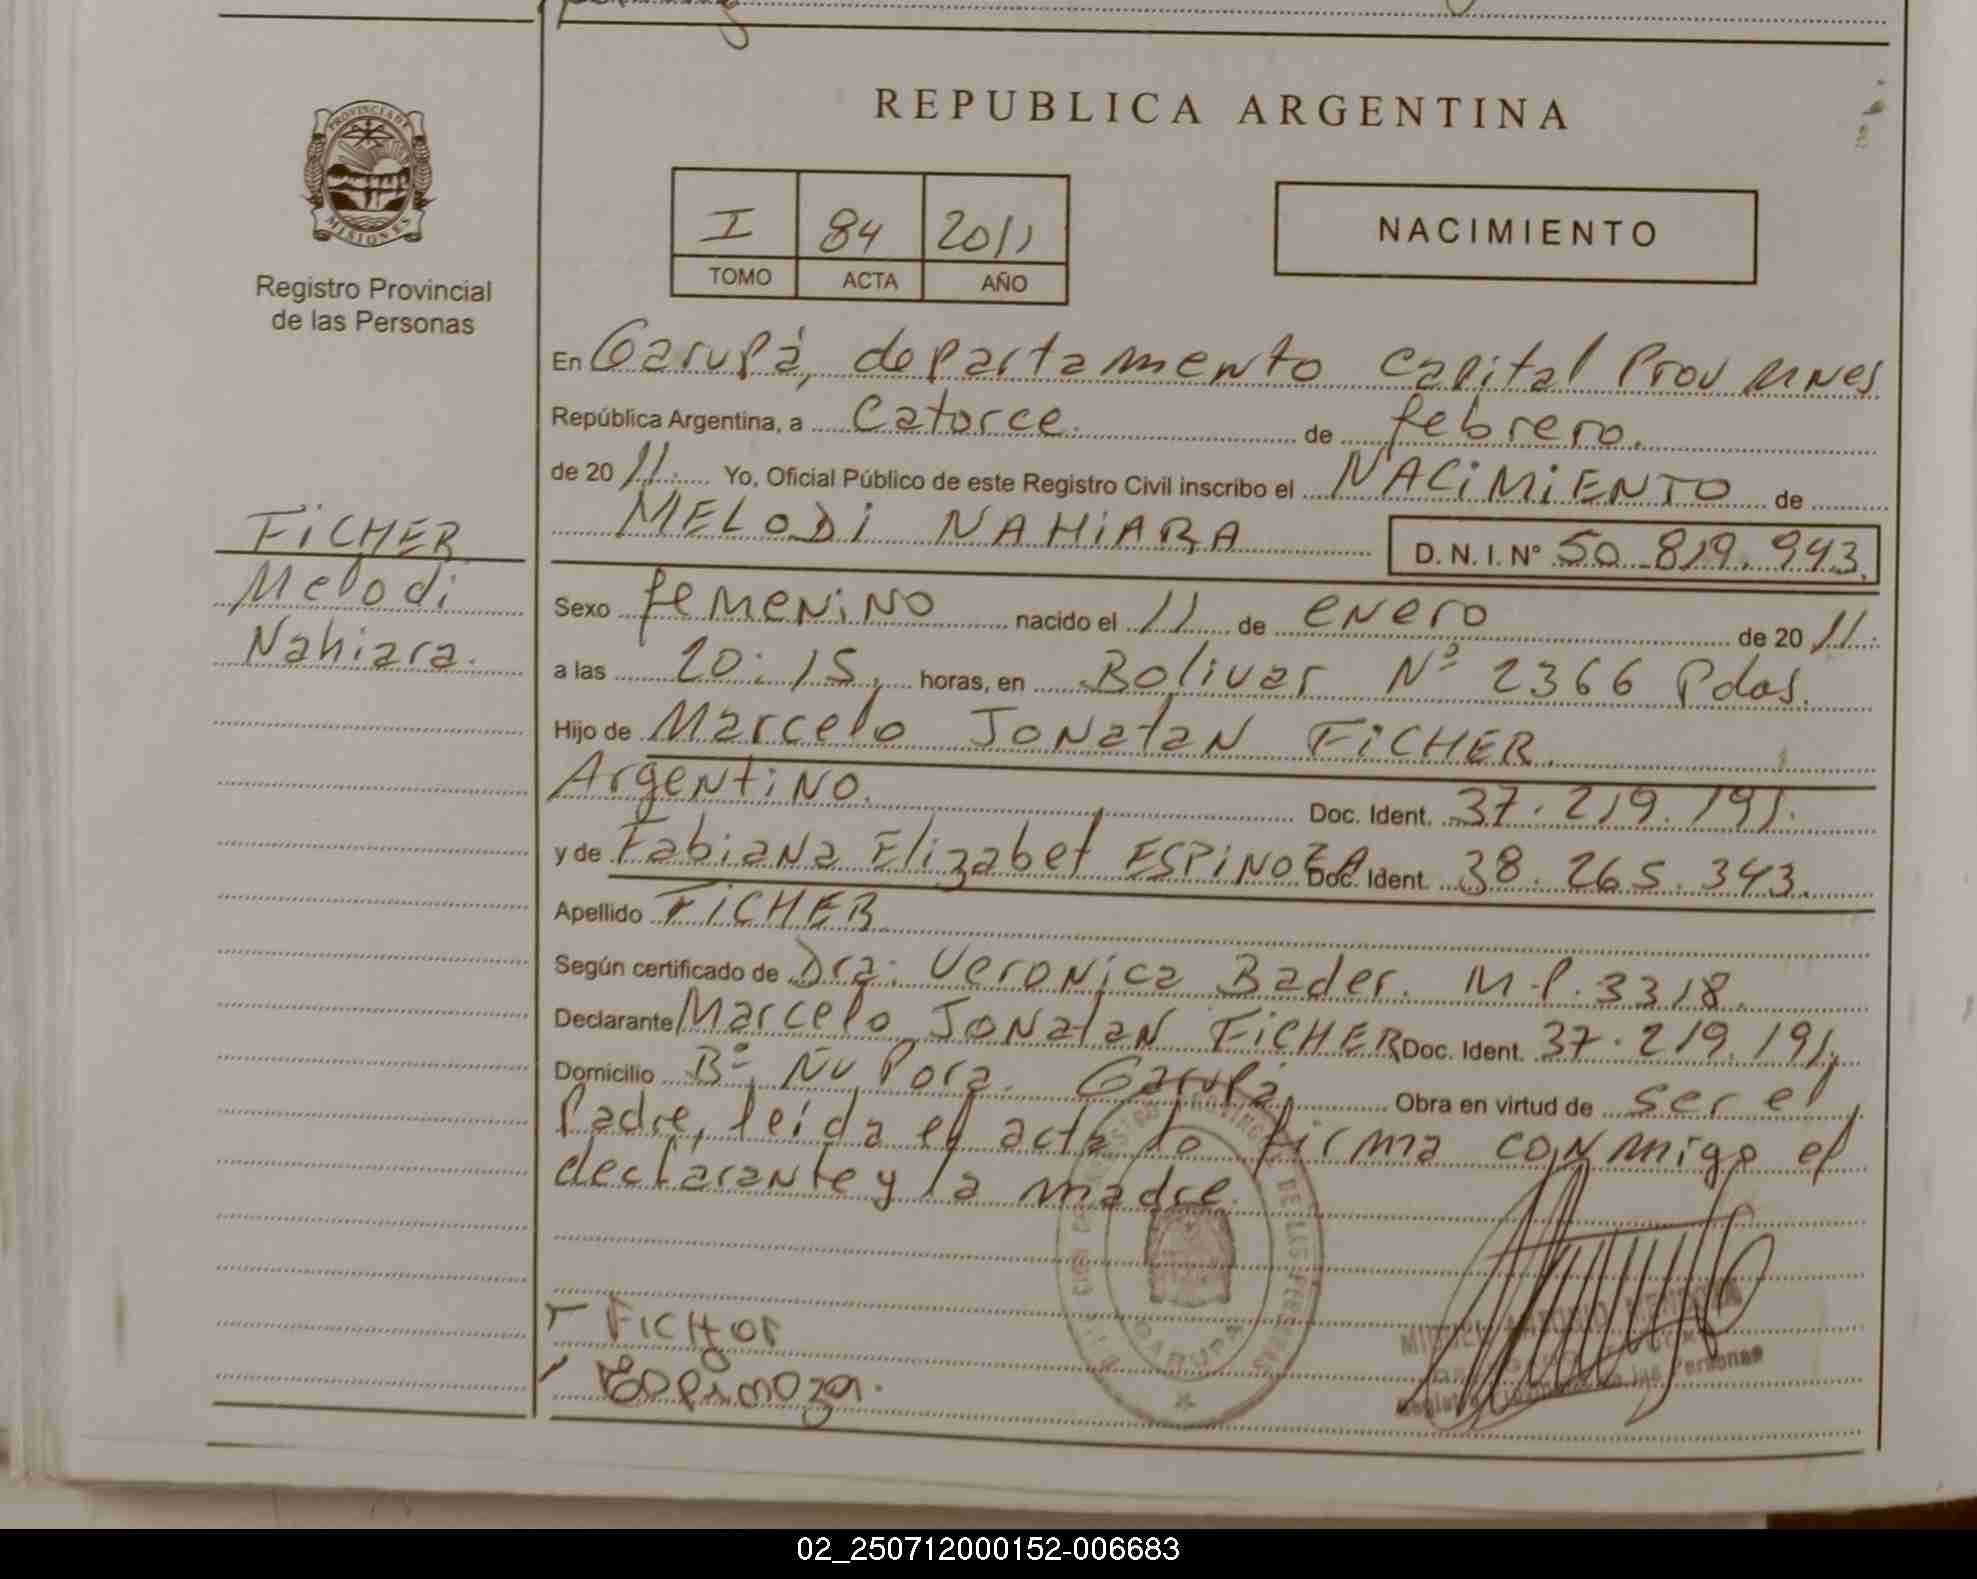 REPUBLICA ARGENTINA
PROVINCIA DE
MISIONES
Registro Provincial
de las Personas
I 84 2011
TOMO ACTA AÑO
NACIMIENTO
En Garupá, departamento Capital Prov Mnes
República Argentina, a Catorce. de febrero.
de 20 11. Yo, Oficial Público de este Registro Civil inscribo el NACIMIENTO de
MELODI NAHIARA D. N. I. N° 50.819.943.
FICHER
Melodi
Nahiara.
Sexo femenino nacido el 11 de enero de 20 11.
a las 20:15, horas, en Bolivar Nº 2366 Pdas.
Hijo de Marcelo Jonatan FICHER.
Argentino. Doc. Ident. 37.219.191.
y de Fabiana Elizabet ESPINOZA Doc. Ident. 38.265.343.
Apellido FICHER.
Según certificado de Dra: Veronica Bader. M.P. 3318.
Declarante Marcelo Jonatan FICHER Doc. Ident. 37.219.191,
Domicilio Bº Ñu Pora. Garupá Obra en virtud de ser el
Padre, leída el acta lo firma conmigo el
declarante y la madre.
Ficher
Espinoza.
GARUPA
DE LAS PERSONAS
MIGUEL ANTONIO
de las Personas
02_250712000152-006683